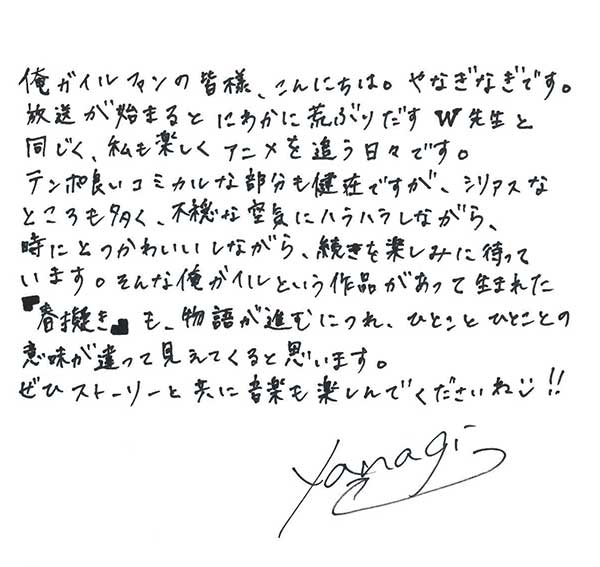 俺ガイルファンの皆様、こんにちは。やなぎなぎです。
放送が始まるとにわかに荒ぶりだすW先生と
同じく、私も楽しくアニメを追う日々です。
テンポ良いコミカルな部分も健在ですが、シリアスな
ところも多く、不穏な空気にハラハラしながら、
時にとつかわいいしながら、続きを楽しみに待って
います。そんな俺ガイルという作品があって生まれた
『春擬き』も、物語が進むにつれ、ひとことひとことの
意味が違って見えてくると思います。
ぜひストーリーと共に音楽も楽しんでくださいね!!
Yanagi